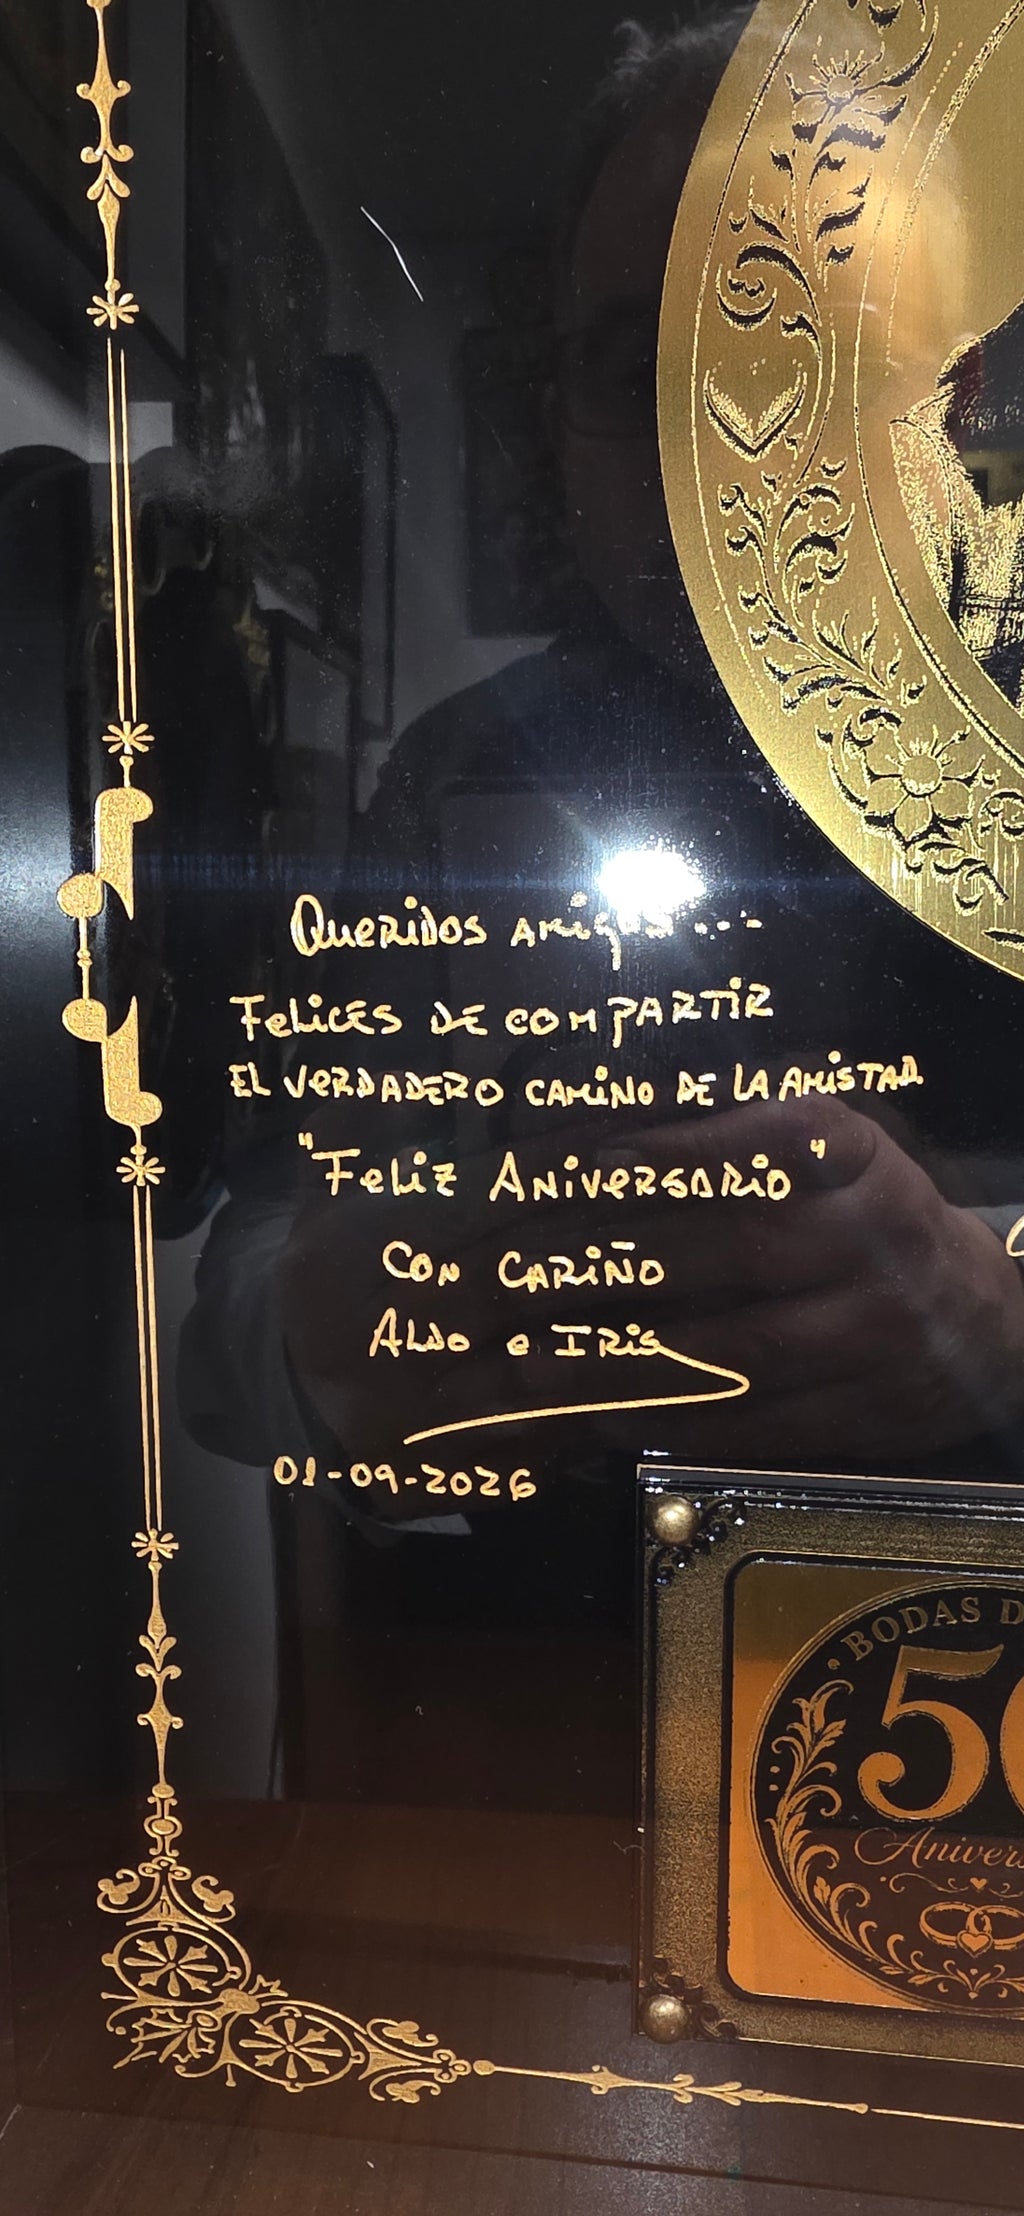 Queridos amigos...
Felices de compartir
el verdadero camino de la amistad
"Feliz Aniversario"
Con cariño
Aldo e Iris
01-09-2026
BODAS D
50
Anivers